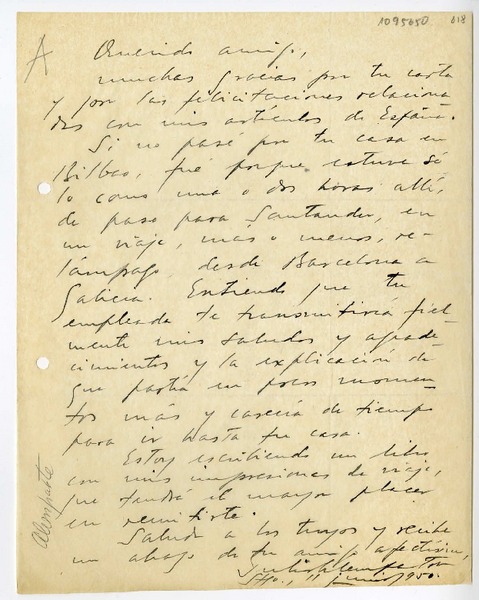 1095650 618
A
Querido amigo,
muchas gracias por tu carta
y por las felicitaciones relaciona
das con mis artículos de España.
Si no pasé por tu casa en
Bilbao, fué porque estuve só
lo como una o dos horas allí,
de paso para Santander, en
un viaje, más o menos, re-
lámpago, desde Barcelona a
Galicia. Entiendo que tu
empleada te transmitiría fiel-
mente mis saludos y agrade-
cimientos y la explicación de
que partía en pocos momen
tos más y carecía de tiempo
para ir hasta tu casa.
Estoy escribiendo un libro
con mis impresiones de viaje,
que tendré el mayor placer
en remitirte.
Saluda a los tuyos y recibe
un abrazo de tu amigo afectísimo,
Stgo., 11 junio 950.
Alonsparte